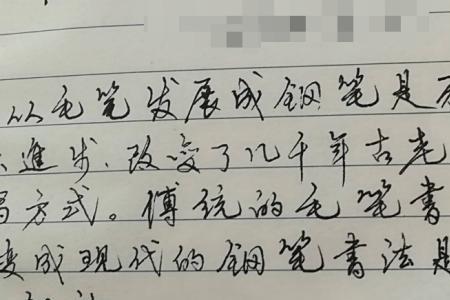 以毛笔发展成钢笔是
進步.改变了几千年古老
方式。傅统的毛笔書
变成现代的钢笔書法是